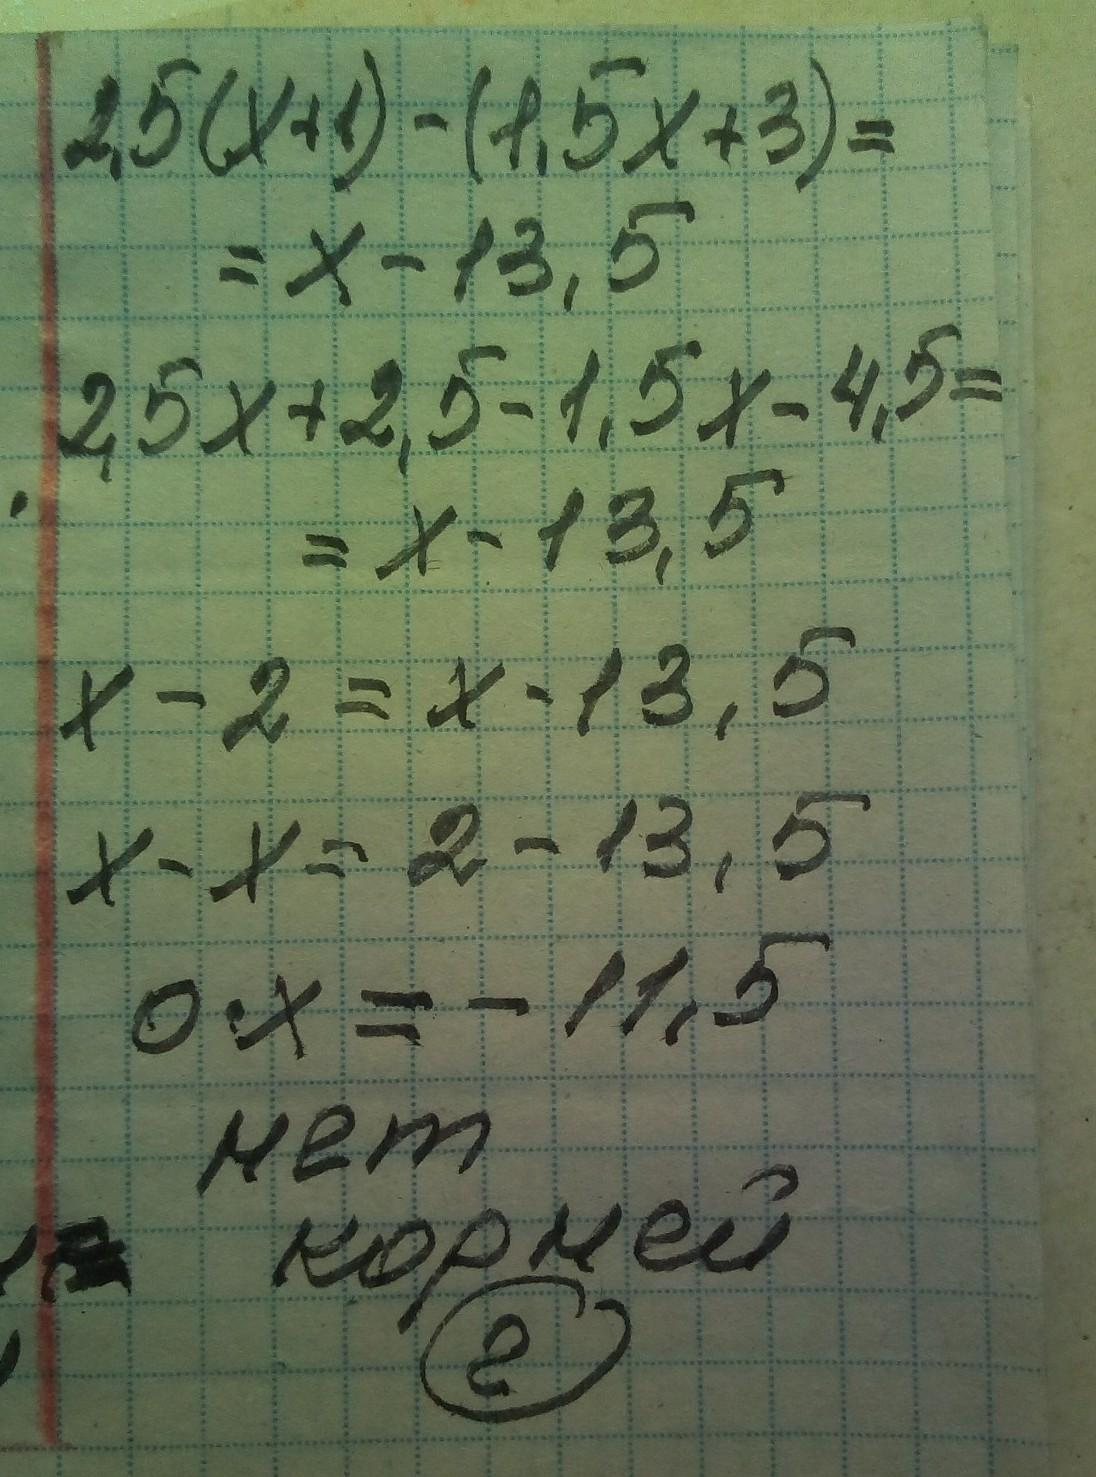 2,5(x+1)-(1,5x+3)=
=x-13,5
2,5x+2,5-1,5x-4,5=
=x-13,5
x-2=x-13,5
x-x=2-13,5
0·x=-11,5
нет
корней
2